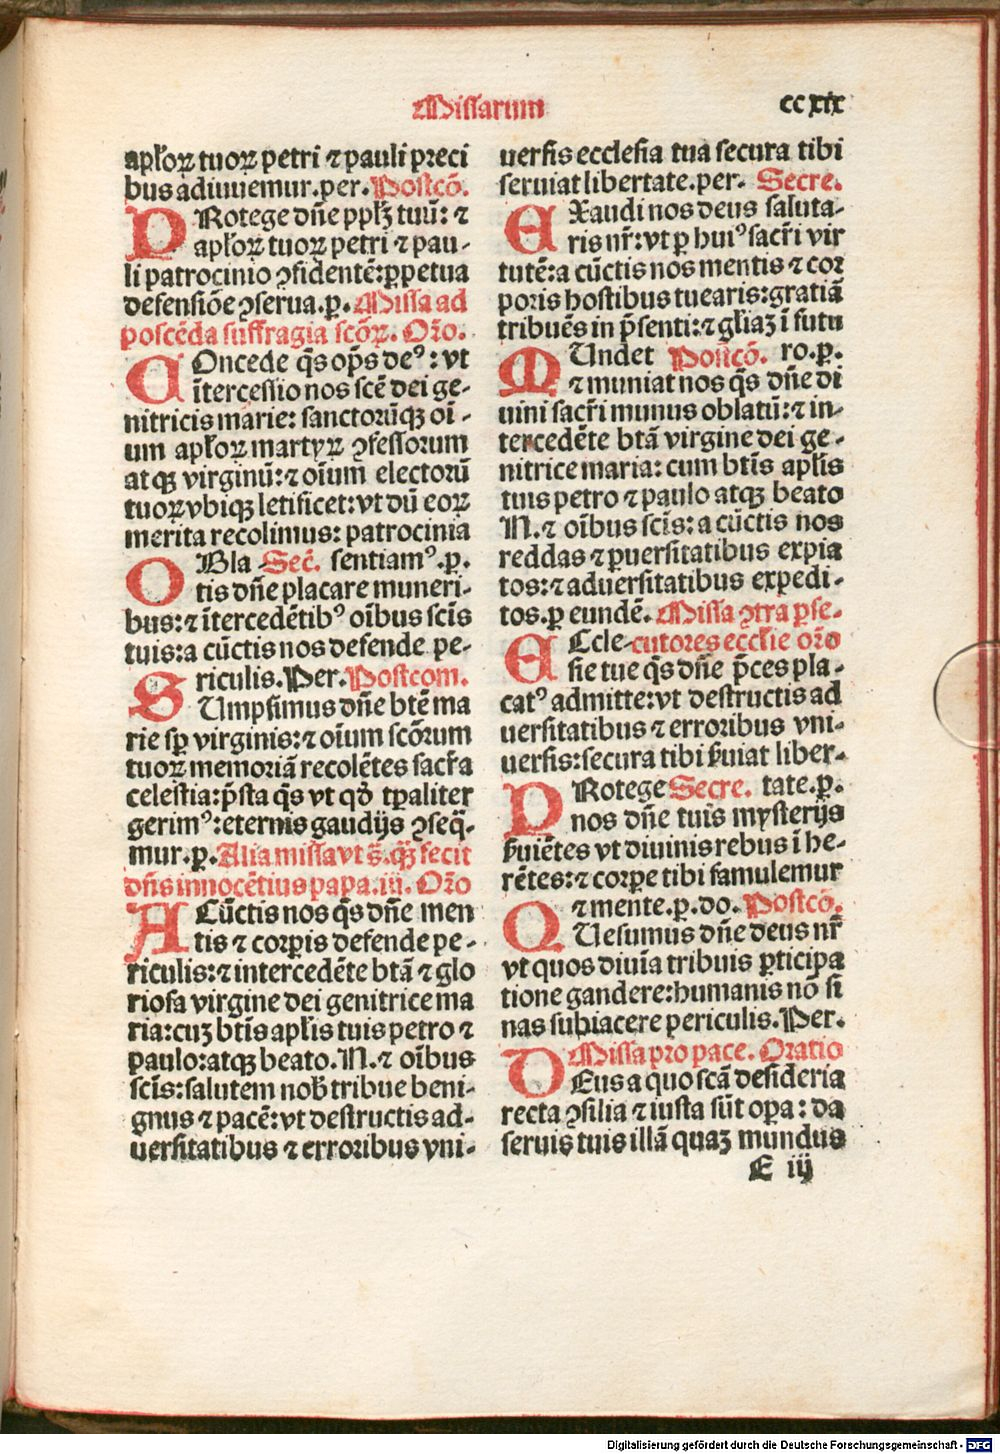 Missarum
ccxix
apłoꝝ tuoꝝ petri ⁊ pauli preci
bus adiuuemur.per. Postcō.
PRotege dn̄e ppłꝫ tuū: ⁊
apłoꝝ tuoꝝ petri ⁊ pau-
li patrocinio ꝯfidentē: ꝑpetua
defensiōe ꝯserua.ꝑ. Missa ad
poscēda suffragia scōꝝ. Orō.
COncede q̄s op̄s deꝰ: vt
ītercessio nos scē dei ge-
nitricis marie: sanctorūqꝫ oī-
um apłoꝝ martyꝝ ꝯfessorum
atqꝫ virginū: ⁊ oīum electorū
tuoꝝ vbiqꝫ letificet: vt dū eoꝝ
merita recolimus: patrocinia
OBla- Sec̄. sentiamꝰ.ꝑ.
tis dn̄e placare muneri-
bus: ⁊ ītercedētibꝰ oībus scīs
tuis: a cūctis nos defende pe-
riculis. Per. Postcom.
SUmpsimus dn̄e btē ma
rie sꝑ virginis: ⁊ oīum scōrum
tuoꝝ memoriā recolētes sacr̄a
celestia: p̄sta q̄s vt qd̄ tꝑaliter
gerimꝰ: eternis gaudijs ꝯseq̄-
mur.ꝑ. Alia missa vt s̄. qꝫ̄ fecit
dn̄s innocētius papa.iii. Orō
A Cūctis nos q̄s dn̄e men
tis ⁊ corꝑis defende pe-
riculis: ⁊ intercedēte btā ⁊ glo
riosa virgine dei genitrice ma
ria: cuꝫ btīs apłis tuis petro ⁊
paulo: atqꝫ beato. N. ⁊ oībus
scīs: salutem nob̄ tribue beni-
gnus ⁊ pacē: vt destructis ad-
uersitatibus ⁊ erroribus vni-
uersis ecclesia tua secura tibi
seruiat libertate.per. Secre.
EXaudi nos deus saluta-
ris nr̄: vt ꝑ huiꝰ sacr̄i vir
tutē: a cūctis nos mentis ⁊ cor
poris hostibus tuearis: gratiā
tribuēs in p̄senti: ⁊ głiaꝫ ī futu
MUndet Postcō. ro.ꝑ.
⁊ muniat nos q̄s dn̄e di
uini sacr̄i munus oblatū: ⁊ in-
tercedēte btā virgine dei ge-
nitrice maria: cum btīs apłis
tuis petro ⁊ paulo atqꝫ beato
N. ⁊ oībus scīs: a cūctis nos
reddas ⁊ ꝑuersitatibus expia
tos: ⁊ aduersitatibus expedi-
tos.ꝑ eundē. Missa ꝯtra ꝑse-
ECcle- cutores ecclīe orō
sie tue q̄s dn̄e p̄ces pla-
catꝰ admitte: vt destructis ad
uersitatibus ⁊ erroribus vni-
uersis: secura tibi ẜuiat liber-
PRotege Secre. tate.ꝑ.
nos dn̄e tuis mysterijs
ẜuiētes vt diuinis rebus ī he-
rētes: ⁊ corꝑe tibi famulemur
⁊ mente.ꝑ.do. Postcō.
QUesumus dn̄e deus nr̄
vt quos diuīa tribuis ꝑticipa
tione gandere: humanis nō si
nas subiacere periculis. Per.
Missa pro pace. Oratio
DEus a quo scā desideria
recta ꝯsilia ⁊ iusta sūt oꝑa: da
seruis tuis illā quaꝫ mundus
E iij
Digitalisierung gefördert durch die Deutsche Forschungsgemeinschaft - DFG